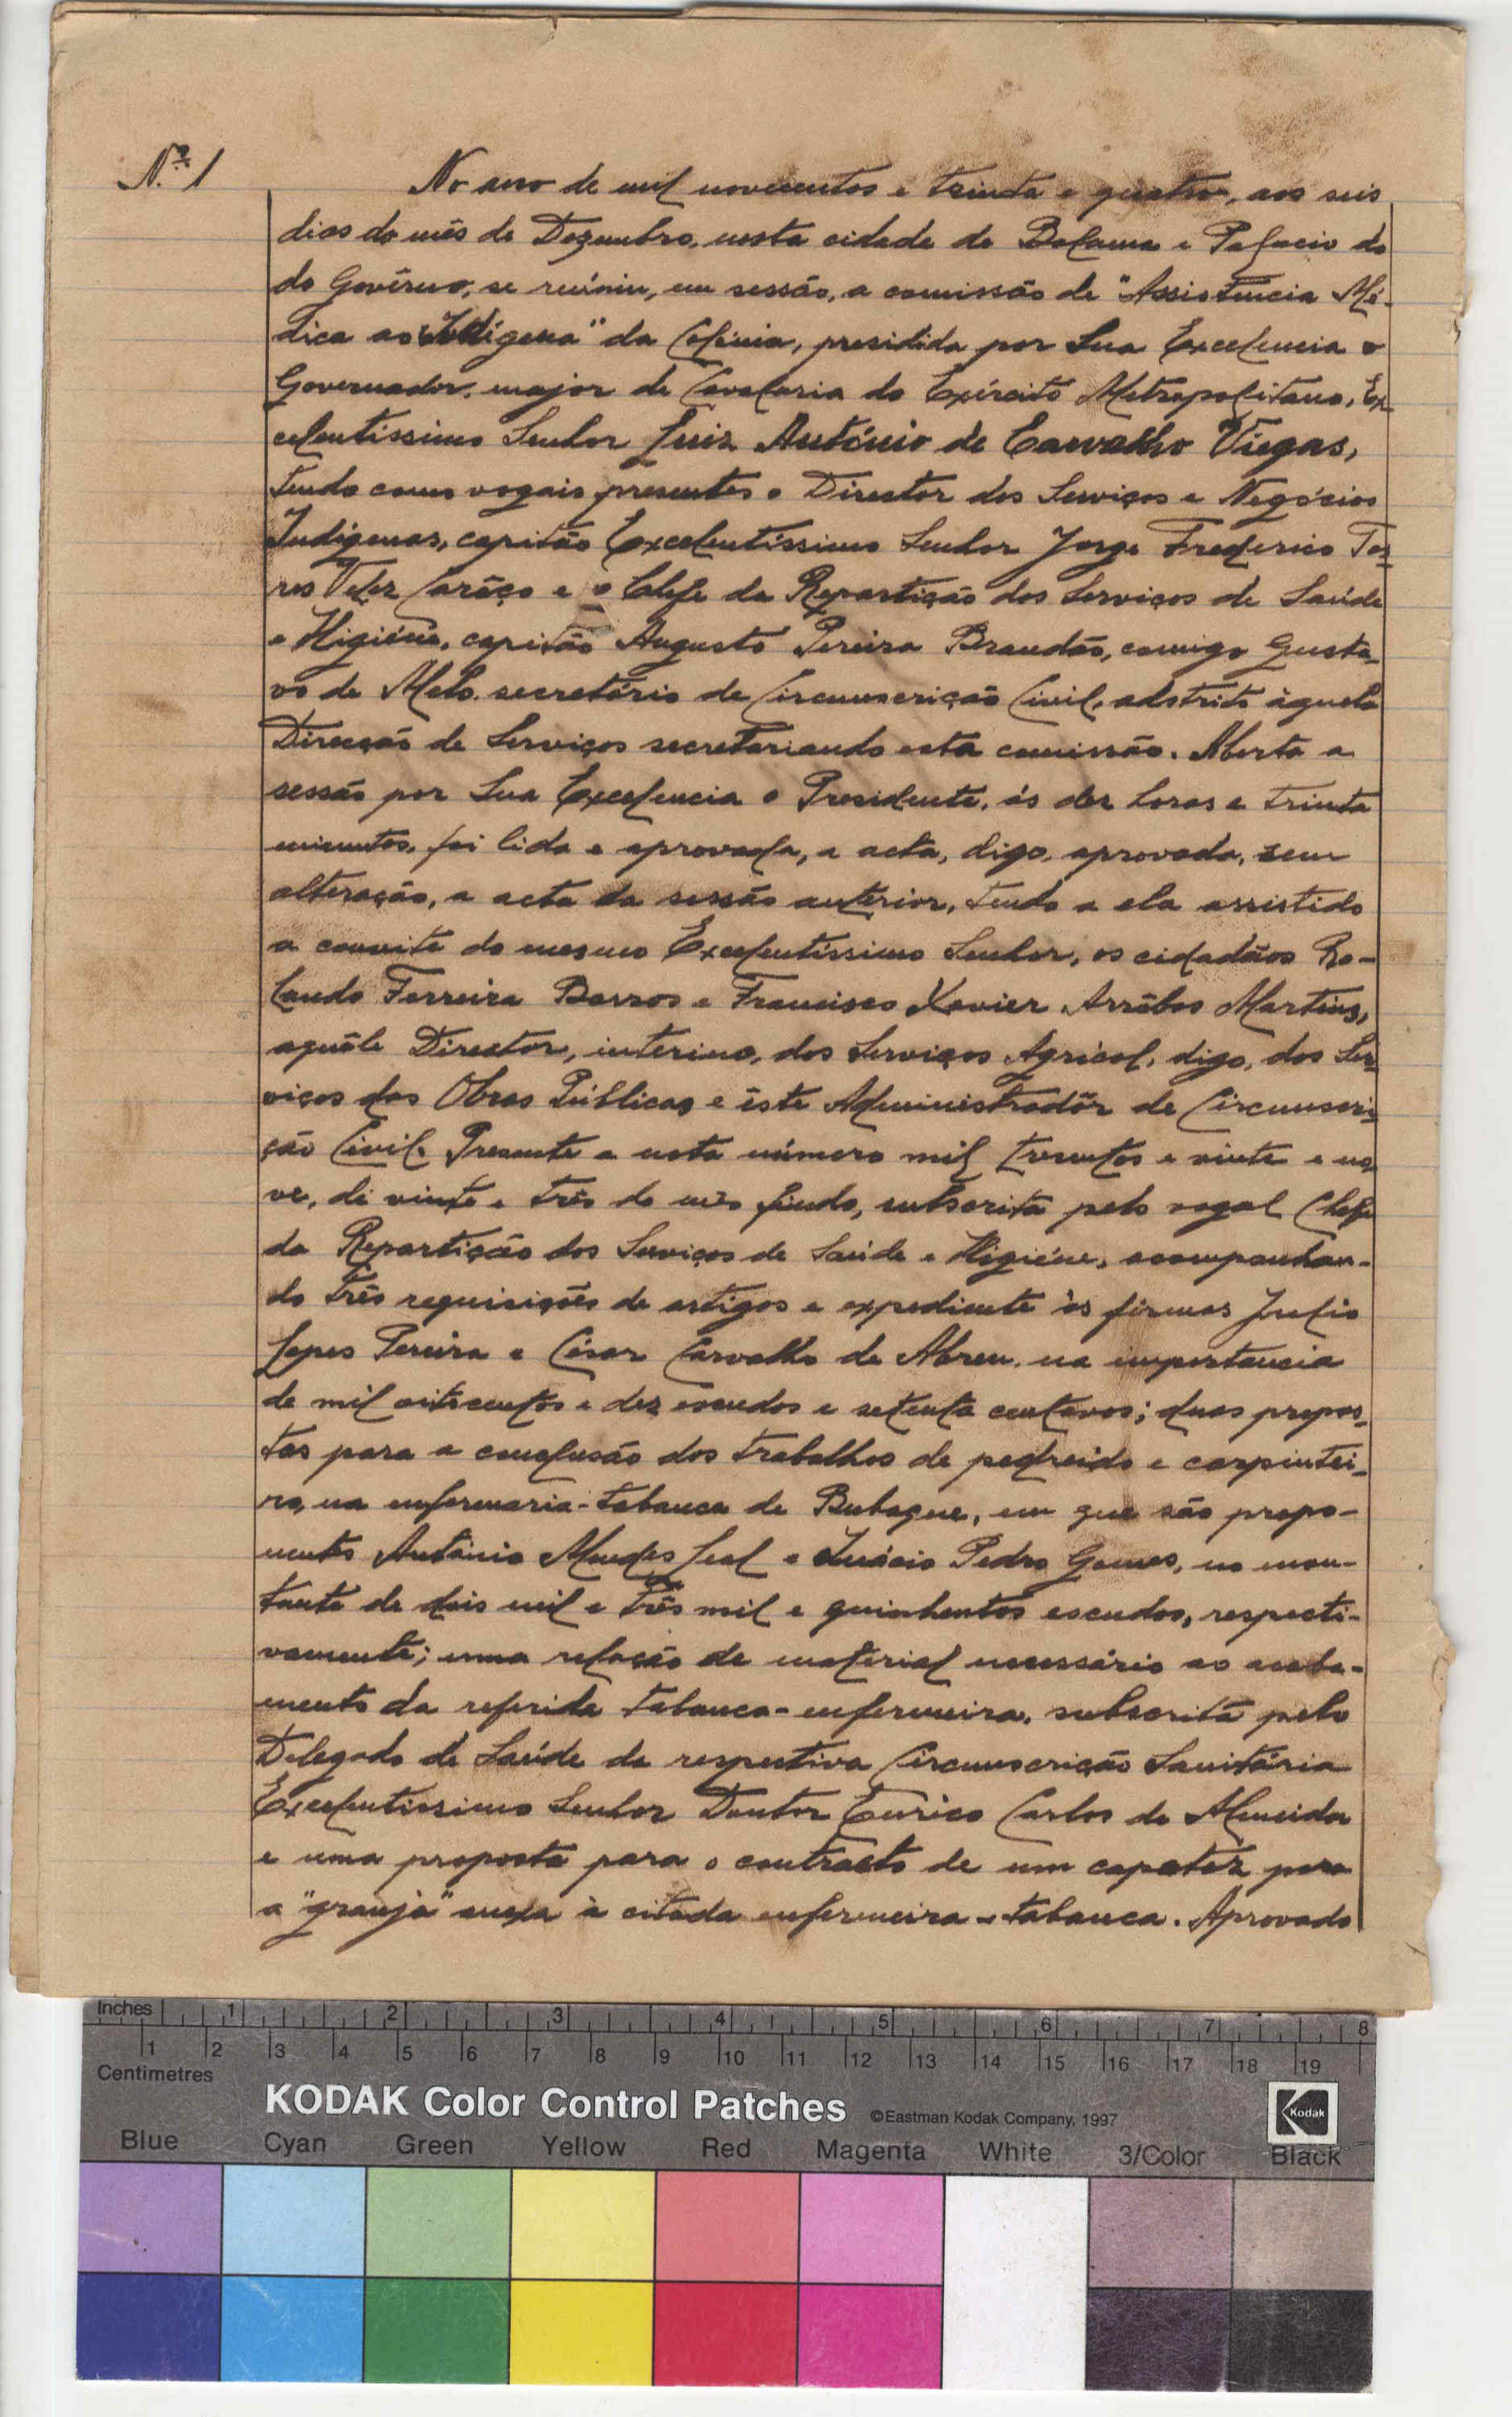 N.º 1
No ano de mil novecentos e trinta e quatro, aos seis
dias do mês de Dezembro, nesta cidade de Bolama e Palacio do
do Govêrno, se reúniu, em sessão, a comissão de "Assistencia Mé-
dica ao Indigena" da Colónia, presidida por Sua Excelencia o
Governador, major de Cavalaria do Exército Metropolitano, Ex
celentissimo Senhor Luiz António de Carvalho Viegas,
tendo como vogais presentes o Director dos Serviços e Negócios
Indigenas, capitão Excelentissimo Senhor Jorge Frederico Tor
res Velez Carôço e o Chefe da Repartição dos Serviços de Saúde
e Higiéne, capitão Augusto Pereira Brandão, comigo Gusta-
vo de Melo, secretário de Circunscrição Civil, adstrito àquela
Direcção de Serviços secretariando esta comissão. Aberta a
sessão por Sua Excelencia o Presidente, ás dez horas e trinta
minutos, foi lida e aprovada, a acta, digo, aprovada, sem
alteração, a acta da sessão anterior, tendo a ela assistido
a convite do mesmo Excelentissimo Senhor, os cidadãos Ro-
lando Ferreira Barros e Francisco Xavier Arrôbas Martins,
aquêle Director, interino, dos Serviços Agricol, digo, dos Ser
viços das Obras Públicas e êste Administradôr de Circunscri
ção Civil. Presente a nota número mil trezentos e vinte e no
ve, de vinte e três do mês findo, subscrita pelo vogal Chefe
da Repartição dos Serviços de Saúde e Higiéne, acompanhan-
do três requisições de artigos e expediente ás firmas Julio
Lopes Pereira e César Carvalho de Abreu, na importancia
de mil oitocentos e dez escudos e setenta centavos; duas propos-
tas para a conclusão dos trabalhos de pedreido e carpintei-
ro, na enfermaria-tabanca de Bubaque, em que são propo-
nentes António Mendes Leal e Inácio Pedro Gomes, no mon-
tante de dois mil e três mil e quinhentos escudos, respecti-
vamente; uma relação de material necessário ao acaba-
mento da referida tabanca-enfermeira, subscrita pelo
Delegado de Saúde da respectiva Circunscrição Sanitária
Excelentissimo Senhor Doutor Eurico Carlos de Almeida
e uma proposta para o contracto de um capataz para
a "granja" anexa à citada enfermeira-tabanca. Aprovado
Inches 1 2 3 4 5 6 7 8
Centimetres 1 2 3 4 5 6 7 8 9 10 11 12 13 14 15 16 17 18 19
KODAK Color Control Patches ©Eastman Kodak Company, 1997 Kodak
Blue Cyan Green Yellow Red Magenta White 3/Color Black